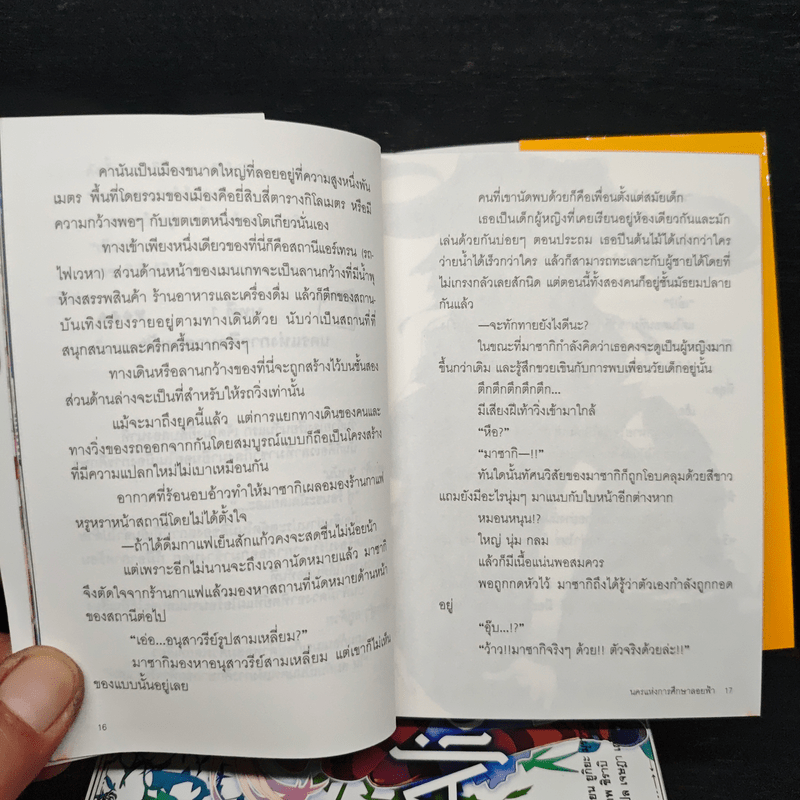 คานันเป็นเมืองขนาดใหญ่ที่ลอยอยู่ที่ความสูงหนึ่งพัน
เมตร พื้นที่โดยรวมของเมืองคือยี่สิบสี่ตารางกิโลเมตร หรือมี
ความกว้างพอๆ กับเขตเขตหนึ่งของโตเกียวนั่นเอง
ทางเข้าเพียงหนึ่งเดียวของที่นี่ก็คือสถานีแอร์เทรน (รถ-
ไฟเวหา) ส่วนด้านหน้าของเมนเกทจะเป็นลานกว้างที่มีน้ำพุ
ห้างสรรพสินค้า ร้านอาหารและเครื่องดื่ม แล้วก็ตึกของสถาน-
บันเทิงเรียงรายอยู่ตามทางเดินด้วย นับว่าเป็นสถานที่ที่
สนุกสนานและครึกครื้นมากจริงๆ
ทางเดินหรือลานกว้างของที่นี่จะถูกสร้างไว้บนชั้นสอง
ส่วนด้านล่างจะเป็นที่สำหรับให้รถวิ่งเท่านั้น
แม้จะมาถึงยุคนี้แล้ว แต่การแยกทางเดินของคนและ
ทางวิ่งของรถออกจากกันโดยสมบูรณ์แบบก็ถือเป็นโครงสร้าง
ที่มีความแปลกใหม่ไม่เบาเหมือนกัน
อากาศที่ร้อนอบอ้าวทำให้มาซากิเผลอมองร้านกาแฟ
หรูหราหน้าสถานีโดยไม่ได้ตั้งใจ
—ถ้าได้ดื่มกาแฟเย็นสักแก้วคงจะสดชื่นไม่น้อยน้า
แต่เพราะอีกไม่นานจะถึงเวลานัดหมายแล้ว มาซากิ
จึงตัดใจจากร้านกาแฟแล้วมองหาสถานที่นัดหมายด้านหน้า
ของสถานีต่อไป
“เอ่อ...อนุสาวรีย์รูปสามเหลี่ยม?”
มาซากิมองหาอนุสาวรีย์สามเหลี่ยม แต่เขาก็ไม่เห็น
ของแบบนั้นอยู่เลย
16
คนที่เขานัดพบด้วยก็คือเพื่อนตั้งแต่สมัยเด็ก
เธอเป็นเด็กผู้หญิงที่เคยเรียนอยู่ห้องเดียวกันและมัก
เล่นด้วยกันบ่อยๆ ตอนประถม เธอปีนต้นไม้ได้เก่งกว่าใคร
ว่ายน้ำได้เร็วกว่าใคร แล้วก็สามารถทะเลาะกับผู้ชายได้โดยที่
ไม่เกรงกลัวเลยสักนิด แต่ตอนนี้ทั้งสองคนก็อยู่ชั้นมัธยมปลาย
กันแล้ว
—จะทักทายยังไงดีนะ?
ในขณะที่มาซากิกำลังคิดว่าเธอคงจะดูเป็นผู้หญิงมาก
ขึ้นกว่าเดิม และรู้สึกขวยเขินกับการพบเพื่อนวัยเด็กอยู่นั้น
ตึกตึกตึกตึกตึก...
มีเสียงฝีเท้าวิ่งเข้ามาใกล้
“หือ?”
“มาซากิ—!!”
ทันใดนั้นทัศนวิสัยของมาซากิก็ถูกโอบคลุมด้วยสีขาว
แถมยังมีอะไรนุ่มๆ มาแนบกับใบหน้าอีกต่างหาก
หมอนหนุน!?
ใหญ่ นุ่ม กลม
แล้วก็มีเนื้อแน่นพอสมควร
พอถูกกดหัวไว้ มาซากิถึงได้รู้ว่าตัวเองกำลังถูกกอด
อยู่
“อุ๊บ...!?”
“ว้าว!!มาซากิจริงๆ ด้วย!! ตัวจริงด้วยล่ะ!!”
นครแห่งการศึกษาลอยฟ้า 17